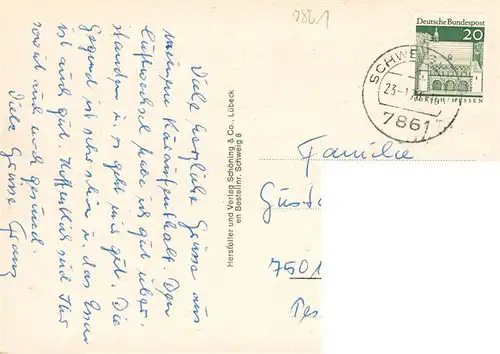 7861
Deutsche Bundespost
20
LORSCH/HESSEN
SCHWEIG
23.-1
7861
Viele herzliche Grüsse aus
meinem Kuraufenthalt. Den
Luftwechsel habe ich gut über-
standen u. es geht mir gut. Die
Gegend ist sehr schön u. das Essen
ist auch gut. Hoffentlich seid Ihr
soweit auch noch gesund.
Viele Grüsse Franz
Hersteller und Verlag Schöning & Co., Lübeck
en Bestellnr. Schweig 8
Familie
Gust
7501